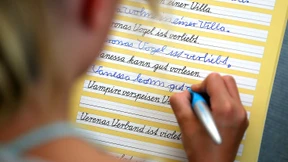 einer Villa.
einer Villa.
Veronas Vogel ist verliebt.
Veronas Vogel ist verliebt.
Vanessa kann gut vorlesen.
Vanessa kann gut
Vampire verspeisen
Veronas Verband ist violett